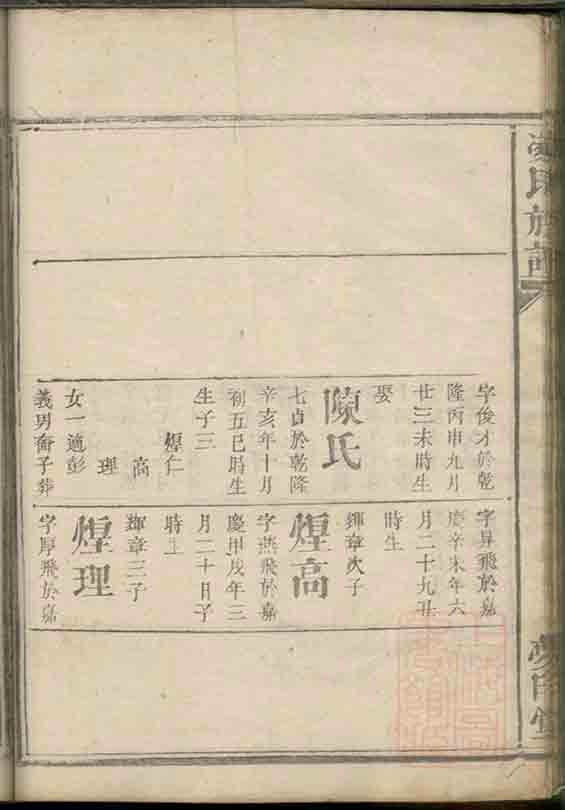 氏族譜
字俊才於乾
隆丙申九月
廿三未時生
娶
陳氏
七貞於乾隆
辛亥年十月
初五巳時生
生子三
煌仁
高
理
女一適彭
義男喬子葬
字昇飛於嘉
慶辛未年六
月二十九丑
時生
煌高
輝章次子
字燕飛於嘉
慶甲戌年三
月二十日子
時生
煌理
輝章三子
字厚飛於嘉